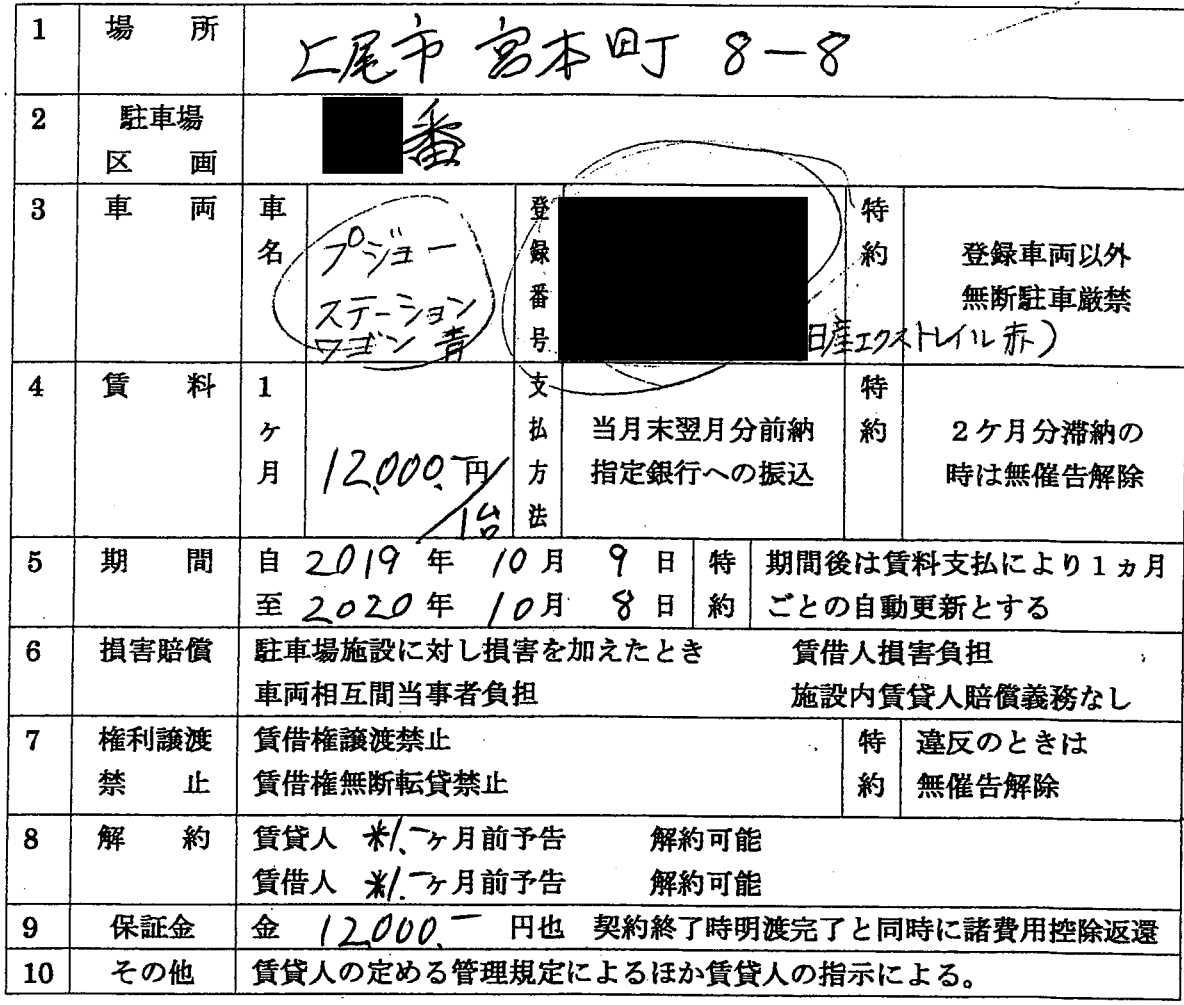 1 場 所 上尾市 宮本町 8-8
2 駐車場 区 画 番
3 車 両 車名 プジョー
ステーション
ワゴン 青
登録番号
日産エクストレイル赤)
特約 登録車両以外
無断駐車厳禁
4 賃 料 1ヶ月 12,000.-円/1台
支払方法 当月末翌月分前納
指定銀行への振込
特約 2ケ月分滞納の
時は無催告解除
5 期 間 自 2019 年 10 月 9 日
至 2020 年 10 月 8 日
特約 期間後は賃料支払により1ヵ月
ごとの自動更新とする
6 損害賠償 駐車場施設に対し損害を加えたとき 賃借人損害負担
車両相互間当事者負担 施設内賃貸人賠償義務なし
7 権利譲渡 禁 止 賃借権譲渡禁止
賃借権無断転貸禁止
特約 違反のときは
無催告解除
8 解 約 賃貸人 1.-ヶ月前予告 解約可能
賃借人 1.-ヶ月前予告 解約可能
9 保証金 金 12,000.- 円也 契約終了時明渡完了と同時に諸費用控除返還
10 その他 賃貸人の定める管理規定によるほか賃貸人の指示による。